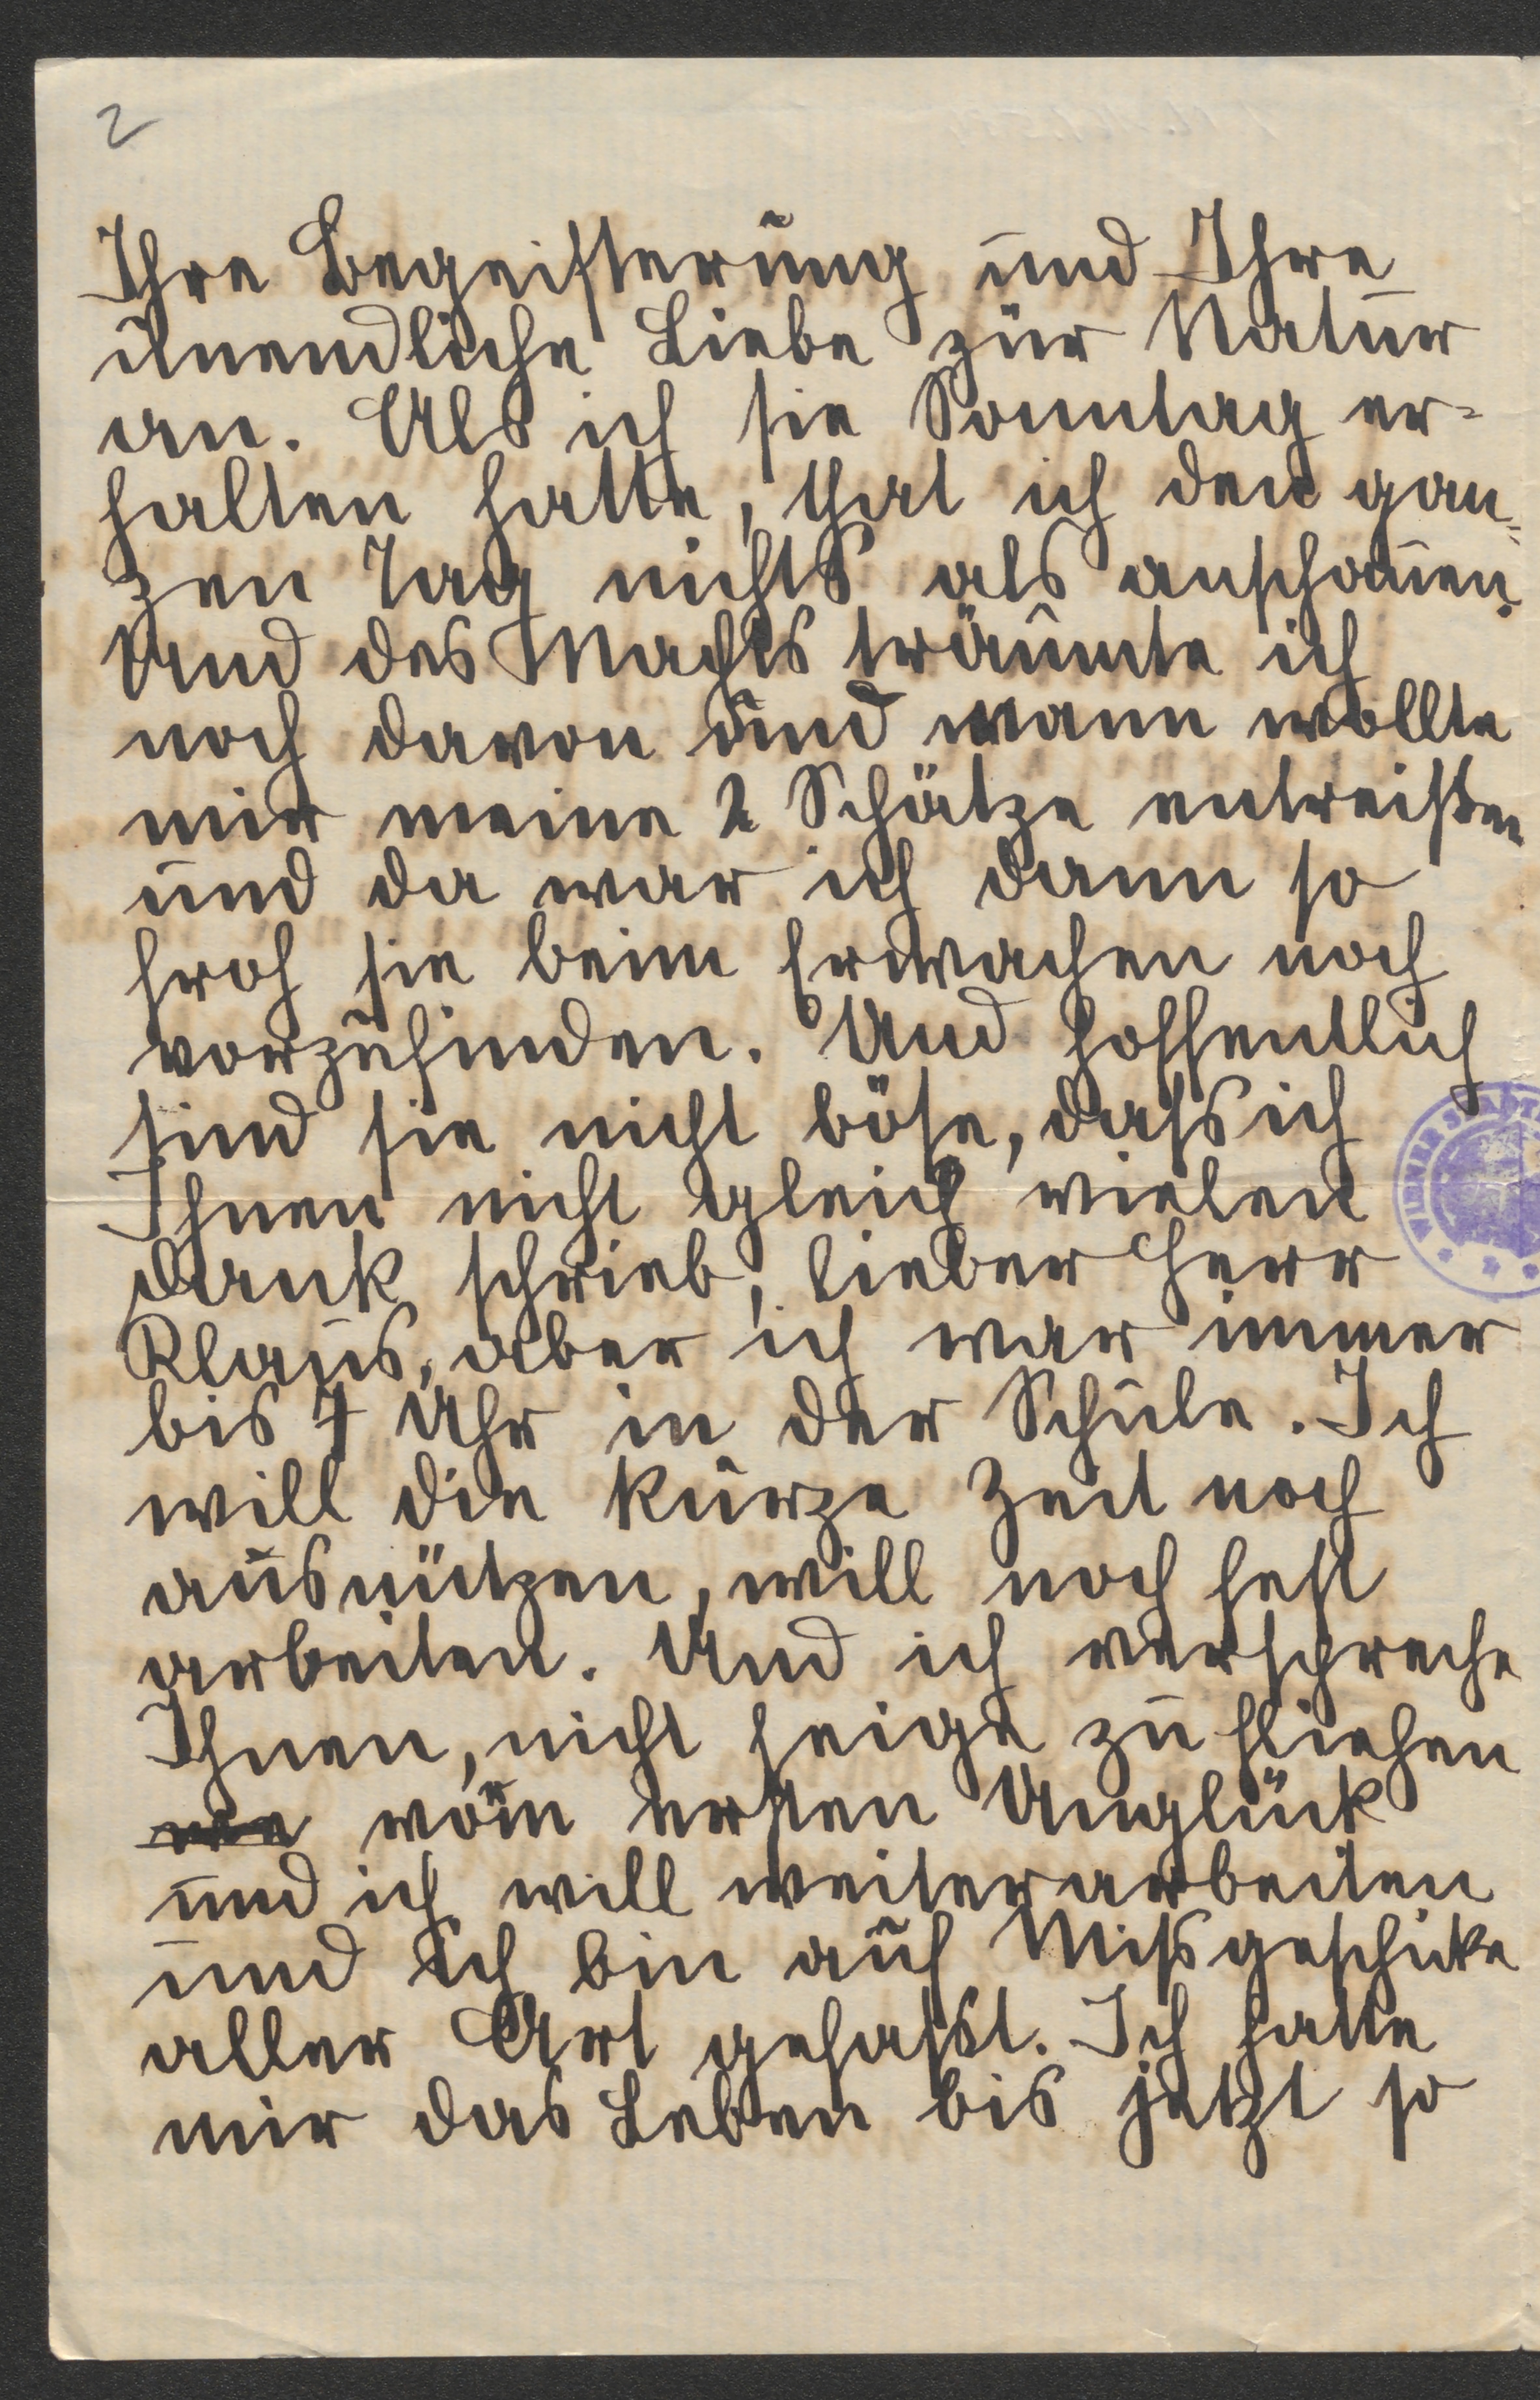 2
Ihre Begeisterung und Ihre
unendliche Liebe zur Natur
an. Als ich sie Sonntag er-
halten hatte, that ich den gan-
zen Tag nichts als anschauen.
Und des Nachts träumte ich
noch davon und wann wollte
mir meine 2 Schätze entreißen
und da war ich dann so
froh sie beim Erwachen noch
vorzufinden. Und hoffentlich
sind sie nicht böse, dass ich
Ihnen nicht gleich vielen
dank schrieb, lieber Herr
Klaus, aber ich war immer
bis 7 Uhr in der Schule. Ich
will die kurze Zeit noch
ausnützen, will noch fest
arbeiten. Und ich verspreche
Ihnen, nicht feige zu fliehen
vom ersten Unglück
und ich will weiterarbeiten
und ich bin auf Missgeschicke
aller Art gefasst. Ich hatte
mir das Leben bis jetzt so
WIENER STADT